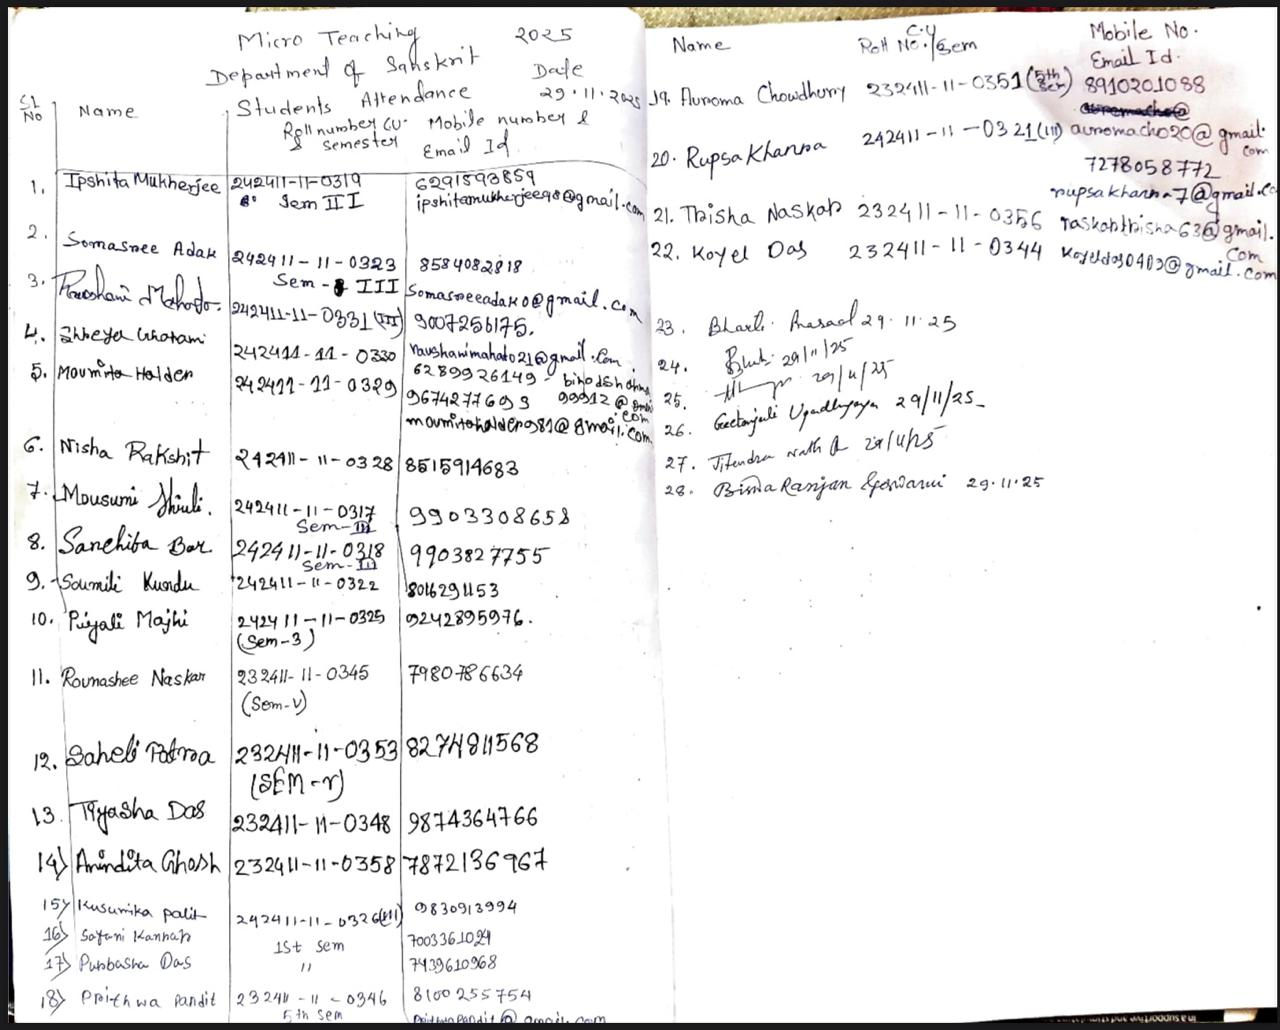 Micro Teaching 2025
Department of Sanskrit Date
Students Attendance 29.11.2025
Sl No Name Roll number CU. & semester Mobile number & Email Id
1. Ipshita Mukherjee 242411-11-0319 6291593859
Sem III ipshitamukherjee98@gmail.com
2. Somasree Adak 242411-11-0323 8584082818
Sem - III somasreeadak0@gmail.com
3. Raushani Mahato. 242411-11-0331 (III) 9007256175.
4. Shreya Ghorami 242411-11-0330 raushanimahato21@gmail.com
6289926149 - binodsharma
99912@gmail.com
5. Moumita Halder 242411-11-0329 9674277693
moumitahalder981@gmail.com
6. Nisha Rakshit 242411-11-0328 8515914683
7. Mousumi Shiuli. 242411-11-0317 9903308658
Sem-III
8. Sanchita Bar 242411-11-0318 9903827755
Sem-III
9. Soumili Kundu 242411-11-0322 8016291153
10. Piyali Majhi 242411-11-0325 9242895976.
(Sem-3)
11. Rounashee Naskar 232411-11-0345 7980786634
(Sem-V)
12. Saheli Patra 232411-11-0353 8274811568
(SEM-V)
13. Tiyasha Das 232411-11-0348 9874364766
14) Anindita Ghosh 232411-11-0358 7872136967
15) Kusumika palit 242411-11-0326(III) 9830913994
16) Sayani Kannap 1st sem 7003361029
17) Purbasha Das " 7439610968
18) Prithwa Pandit 232411-11-0346 8100255754
5th sem prithwapandit@gmail.com
Name C.U Roll No./Sem Mobile No.
Email Id.
19. Auroma Chowdhury 232411-11-0351 (5th Sem) 8910201088
auromacho20@gmail.com
20. Rupsa Khanra 242411-11-0321(III) 7278058772
rupsakhanra7@gmail.co
21. Trisha Naskar 232411-11-0356 naskartrisha63@gmail.com
22. Koyel Das 232411-11-0344 koyeldas0409@gmail.com
23. Bharti Prasad 29.11.25
24. 29/11/25
25. 29/11/25
26. Geetanjali Upadhyaya 29/11/25
27. Jitendra Nath 29/11/25
28. Bimla Ranjan Goswami 29.11.25